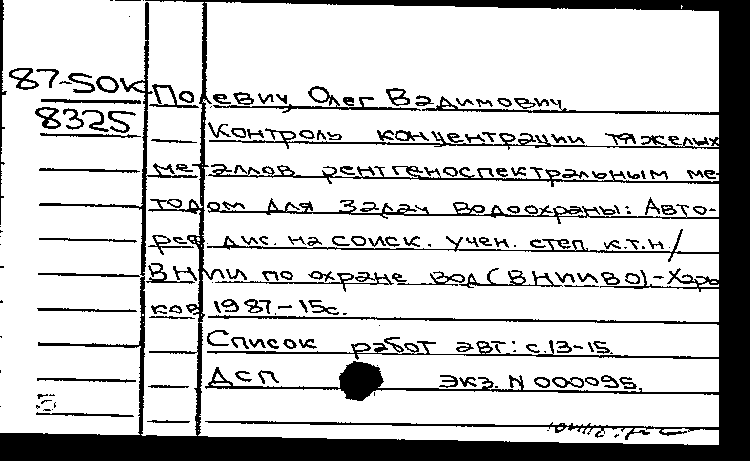 87-5ОК Полевич, Олег Вадимович
8325 Контроль концентрации тяжелых
металлов рентгеноспектральным ме-
тодом для задач водоохраны: Авто-
реф дис. на соиск. учен. степ. к.т.н/
ВНИИ по охране вод (ВНИИВО).-Харь
ков 1987.-15с.
Список работ авт: с.13-15
ДСП экз. N 000095.